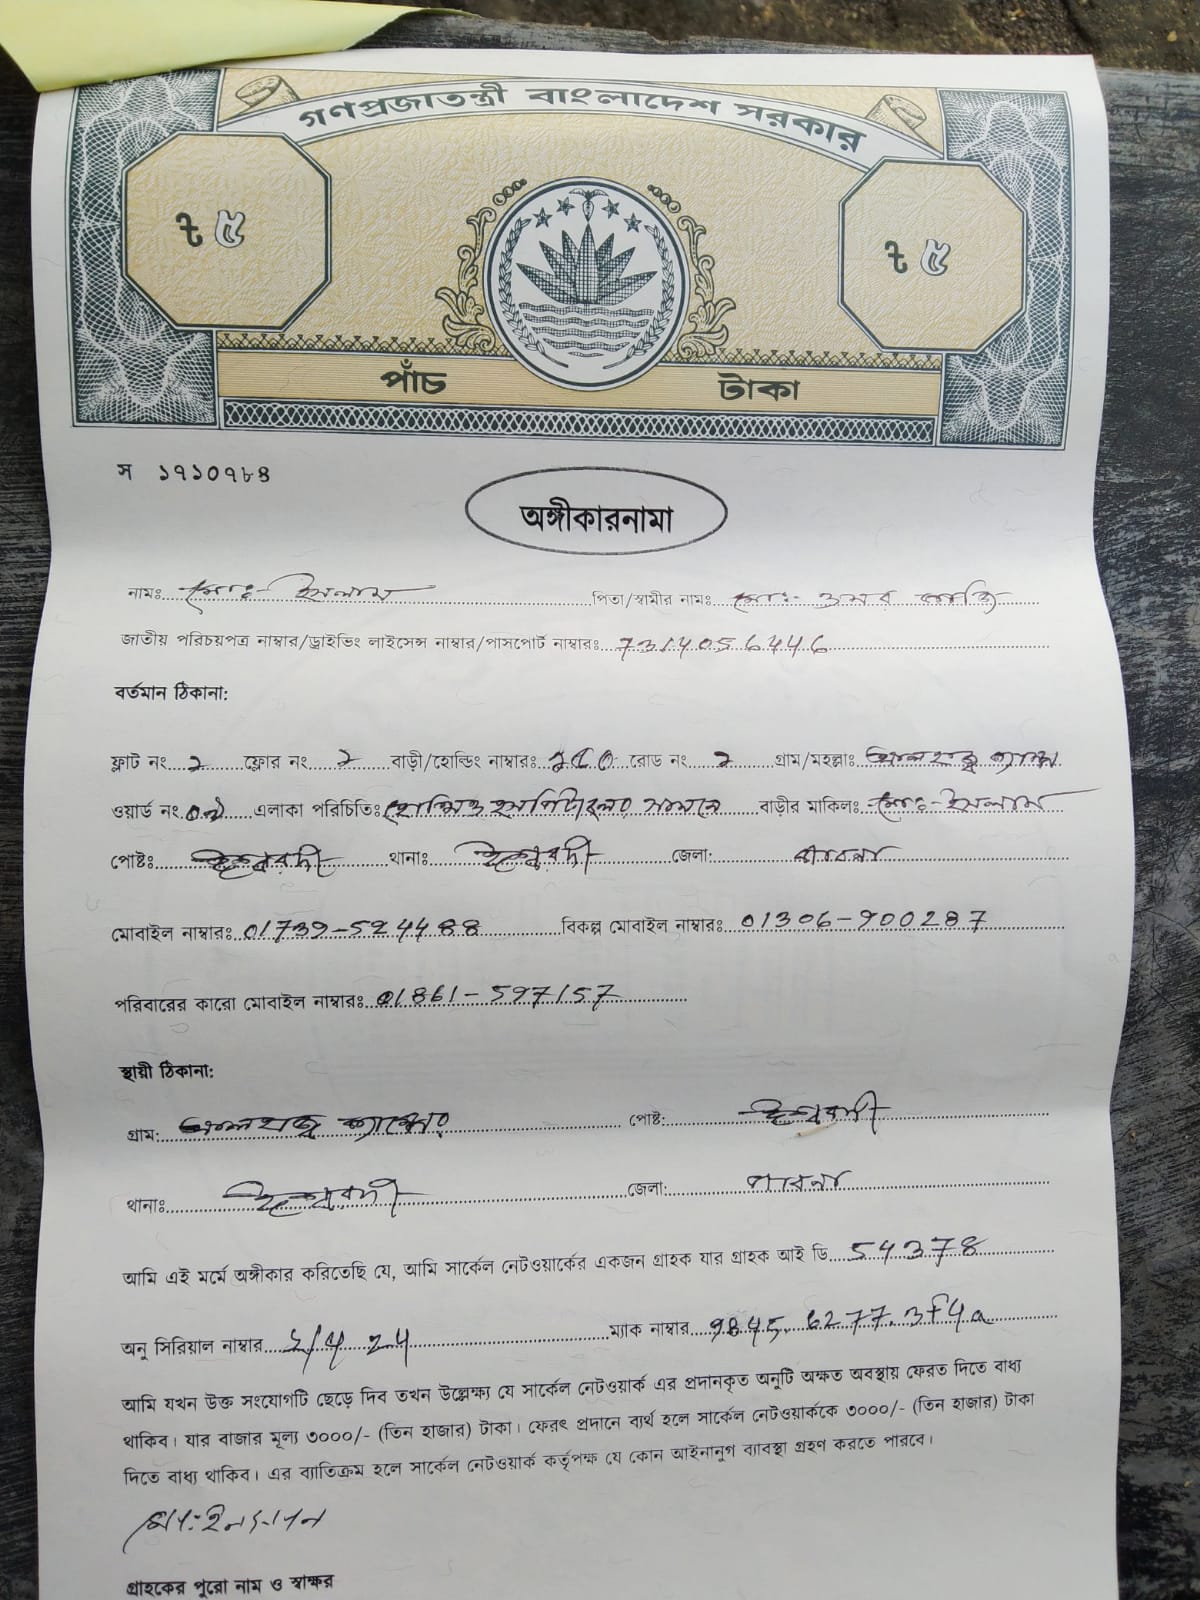 গণপ্রজাতন্ত্রী বাংলাদেশ সরকার
৳ ৫ ৳ ৫
পাঁচ টাকা
স ১৭১০৭৮৪
অঙ্গীকারনামা
নামঃ মোঃ- ইসলাম পিতা/স্বামীর নামঃ মোঃ- ওমর
জাতীয় পরিচয়পত্র নাম্বার/ড্রাইভিং লাইসেন্স নাম্বার/পাসপোর্ট নাম্বারঃ 7314056446
বর্তমান ঠিকানা:
ফ্লাট নং ফ্লোর নং বাড়ী/হোল্ডিং নাম্বারঃ রোড নং গ্রাম/মহল্লাঃ
ওয়ার্ড নং এলাকা পরিচিতিঃ সামনে বাড়ীর মাকিলঃ মোঃ-ইসলাম
পোষ্টঃ ঈশ্বরদী থানাঃ ঈশ্বরদী জেলা: পাবনা
মোবাইল নাম্বারঃ 01739-524488 বিকল্প মোবাইল নাম্বারঃ 01306-900287
পরিবারের কারো মোবাইল নাম্বারঃ 01861-597157
স্থায়ী ঠিকানা:
গ্রাম: পোষ্ট: ঈশ্বরদী
থানাঃ ঈশ্বরদী জেলা: পাবনা
আমি এই মর্মে অঙ্গীকার করিতেছি যে, আমি সার্কেল নেটওয়ার্কের একজন গ্রাহক যার গ্রাহক আই ডি 54378
অনু সিরিয়াল নাম্বার ম্যাক নাম্বার 9845.6277.3f4a
আমি যখন উক্ত সংযোগটি ছেড়ে দিব তখন উল্লেক্ষ্য যে সার্কেল নেটওয়ার্ক এর প্রদানকৃত অনুটি অক্ষত অবস্থায় ফেরত দিতে বাধ্য
থাকিব। যার বাজার মূল্য ৩০০০/- (তিন হাজার) টাকা। ফেরৎ প্রদানে ব্যর্থ হলে সার্কেল নেটওয়ার্ককে ৩০০০/- (তিন হাজার) টাকা
দিতে বাধ্য থাকিব। এর ব্যাতিক্রম হলে সার্কেল নেটওয়ার্ক কর্তৃপক্ষ যে কোন আইনানুগ ব্যাবস্থা গ্রহণ করতে পারবে।
গ্রাহকের পুরো নাম ও স্বাক্ষর